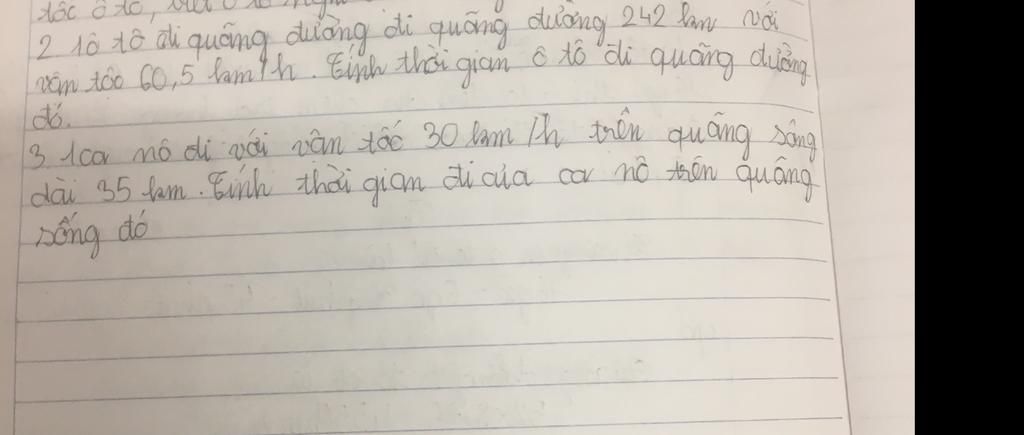 tốc ô tô,
2 1ô tô đi quãng đường đi quãng đường 242 km với
vận tốc 60,5 km/h. Tính thời gian ô tô đi quãng đường
đó.
3 1ca nô đi với vận tốc 30 km/h trên quãng sông
dài 35 km. Tính thời gian đi của ca nô trên quãng
sống đó